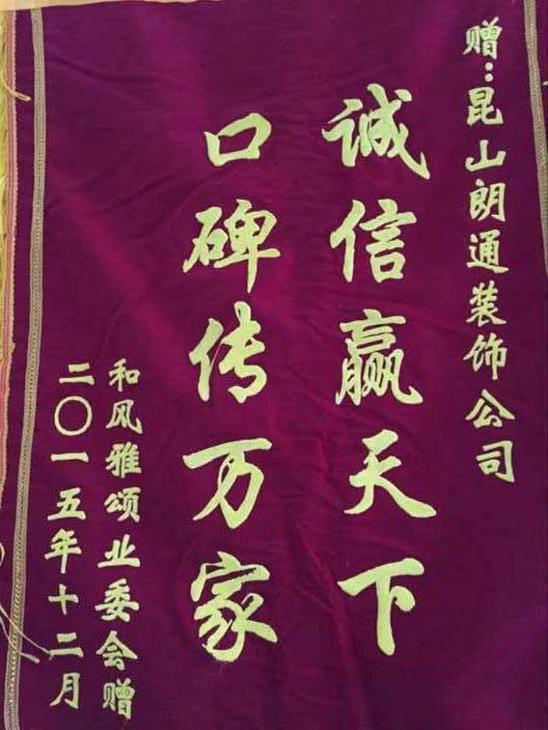 赠:昆山朗通装饰公司
诚信赢天下
口碑传万家
和风雅颂业委会赠
二〇一五年十二月